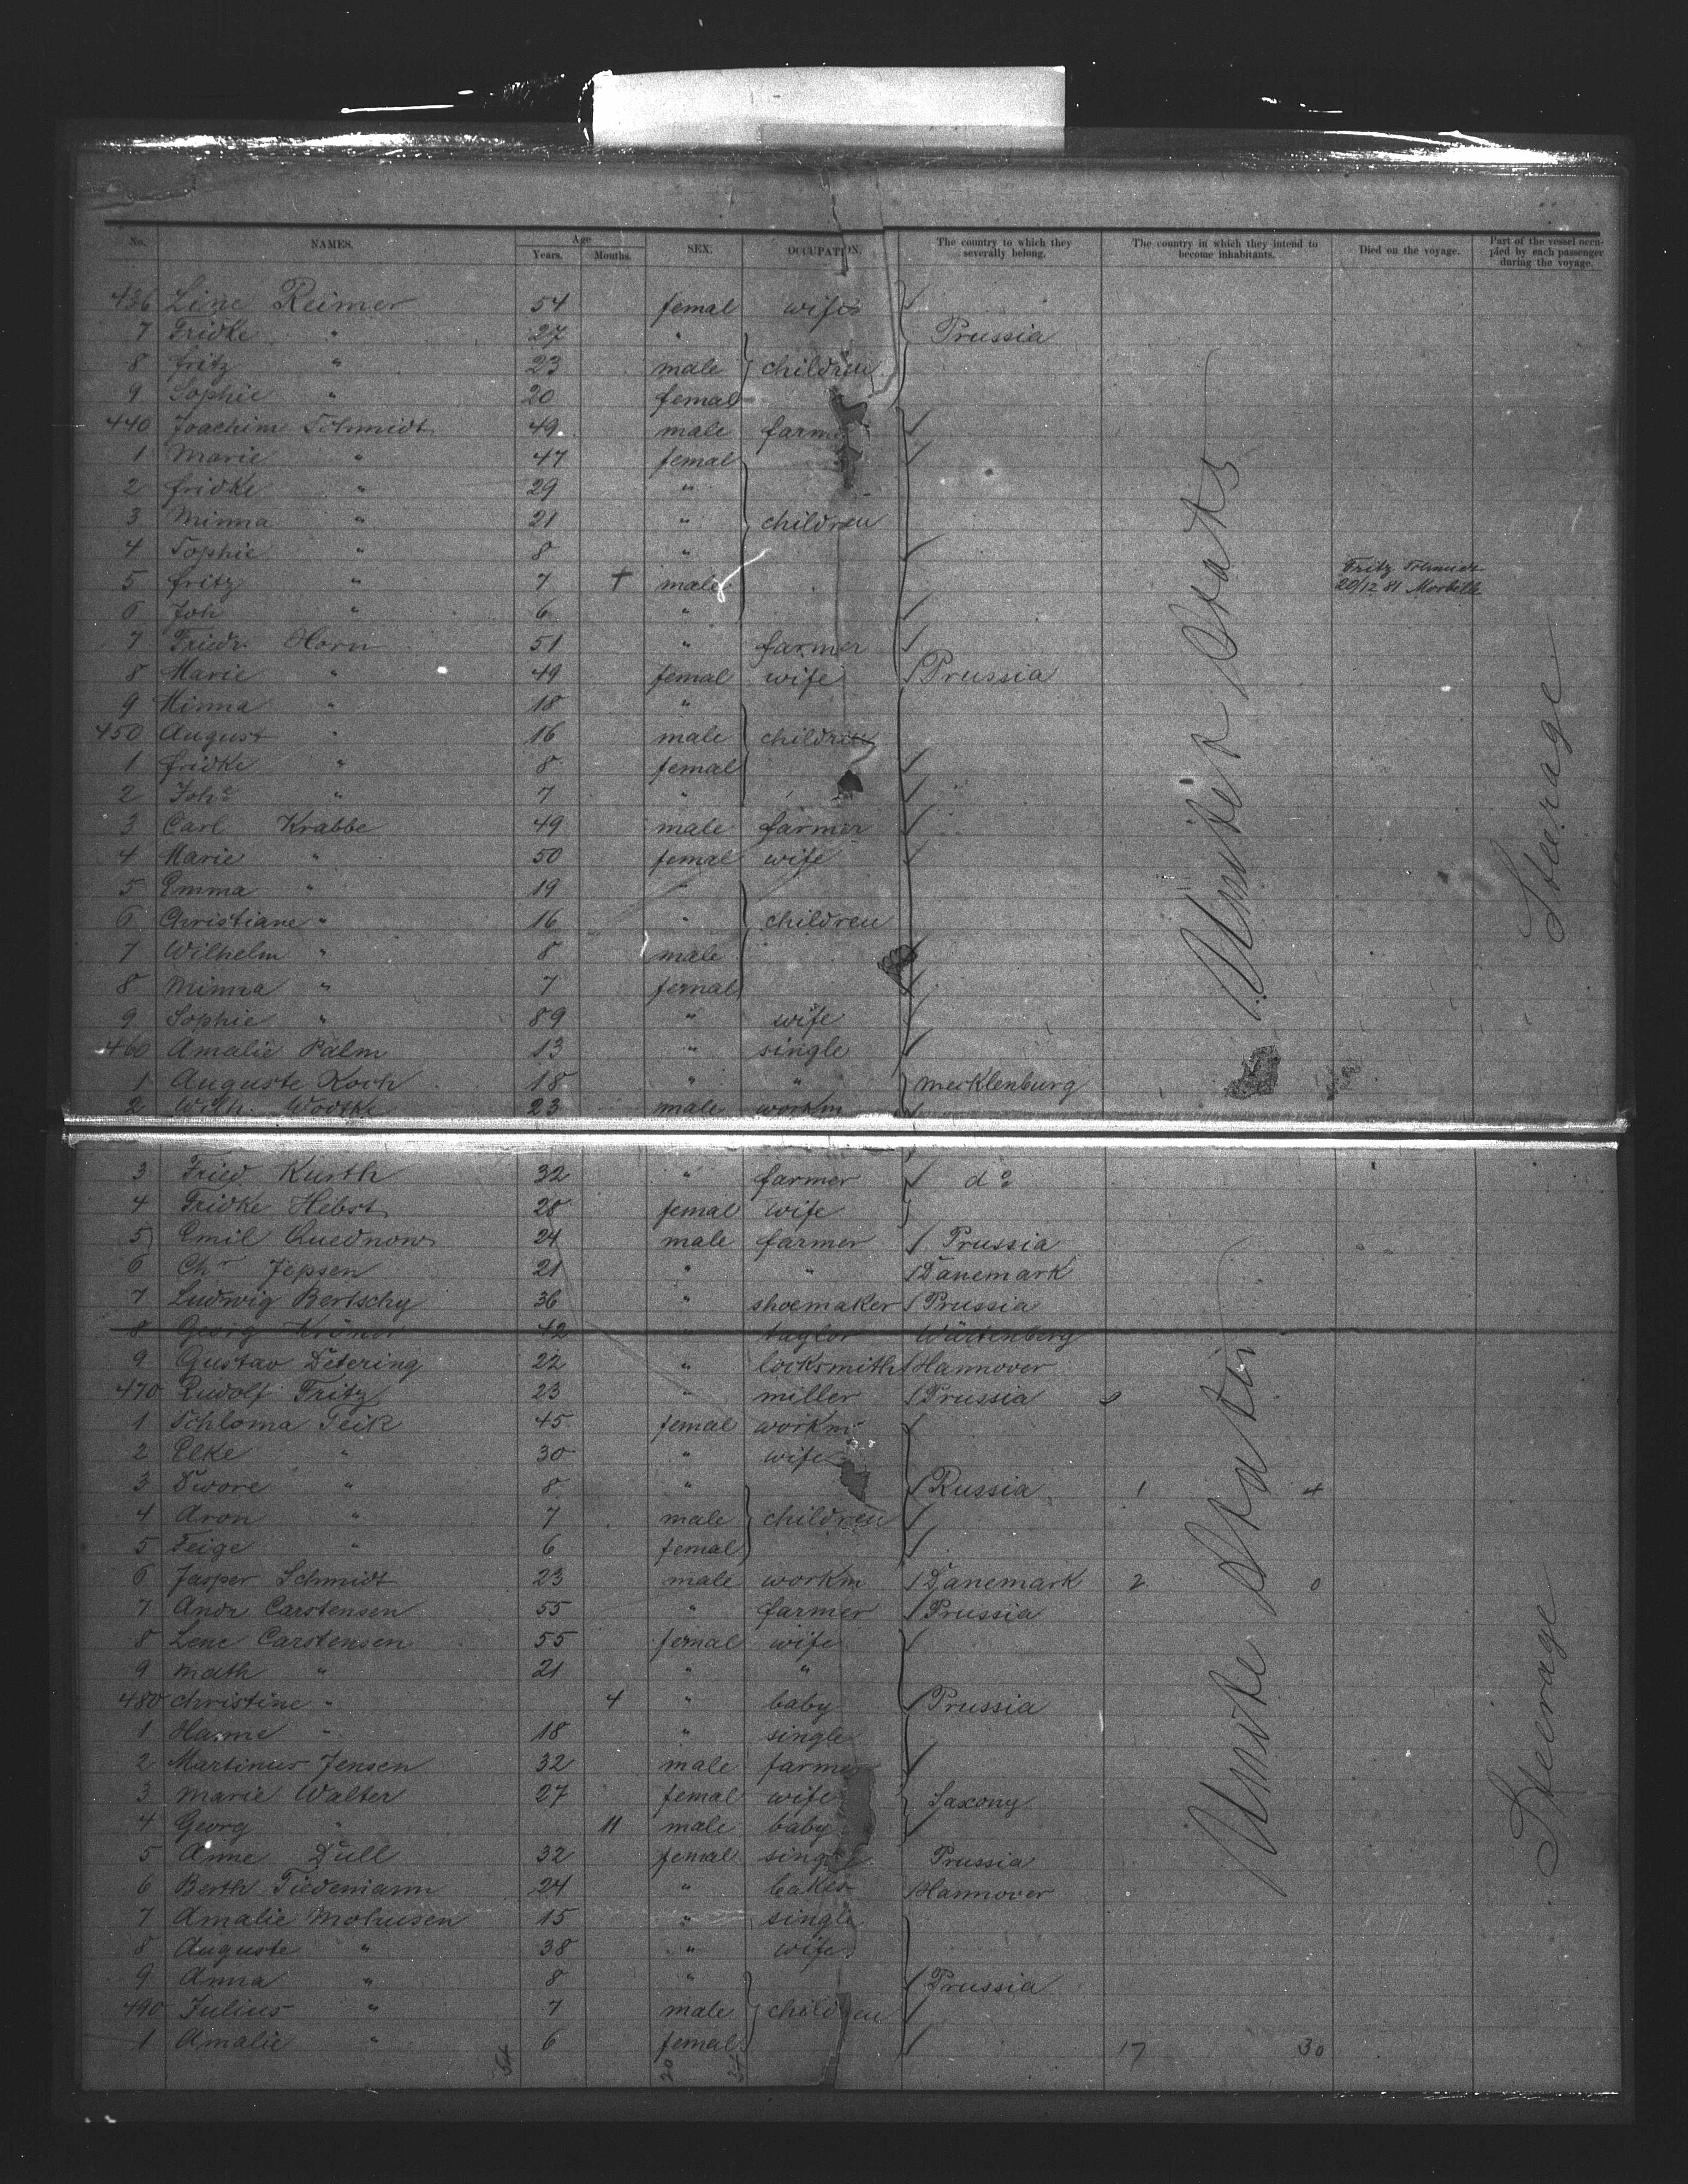 No. NAMES. Age Years. Months. SEX. OCCUPATION. The country to which they severally belong. The country in which they intend to become inhabitants. Died on the voyage. Part of the vessel occupied by each passenger during the voyage.
436 Line Reimer 54 femal wife
7 Fridke " 27 " Prussia
8 fritz " 23 male children
9 Sophie " 20 femal
440 Joachim Schmidt 49 male farmer
1 Marie " 47 femal
2 fridke " 29 "
3 Minna " 21 " children
4 Sophie " 8 "
5 fritz " 7 + male Fritz Schmidt 20/12 81 Morbilli
6 Joh " 6 "
7 Friedr Horn 51 " farmer
8 Marie " 49 femal wife Prussia
9 Minna " 18 "
450 August " 16 male children
1 fridke " 8 femal
2 Joh " 7 "
3 Carl Krabbe 49 male farmer
4 Marie " 50 femal wife
5 Emma " 19 "
6 Christiane " 16 " children
7 Wilhelm " 8 male
8 Minna " 7 femal
9 Sophie " 89 " wife
460 Amalie Palm 13 " single
1 Auguste Koch 18 " " Mecklenburg
2 Wilh. Wodtke 23 male workm
United States
Steerage
3 Fried Kurth 32 " farmer do
4 Fridke Hebst 28 femal wife
5 Emil Quednow 24 male farmer Prussia
6 Chr Jepsen 21 " " Danemark
7 Ludwig Bertschy 36 " shoemaker Prussia
8 Georg Kröner 42 " taylor Würtenberg
9 Gustav Detering 22 " locksmith Hannover
470 Rudolf Fritz 23 " miller Prussia
1 Schloma Teik 45 femal workm
2 Elke " 30 " wife
3 Dwore " 8 " Russia 1 4
4 Aron " 7 male children
5 Feige " 6 femal
6 Jasper Schmidt 23 male workm Danemark 2 0
7 Andr Carstensen 55 " farmer Prussia
8 Lene Carstensen 55 femal wife
9 Math " 21 " "
480 Christine " 4 " baby Prussia
1 Hanne " 18 " single
2 Martinus Jensen 32 male farmer
3 Marie Walter 27 femal wife Saxony
4 Georg " 11 male baby
5 Anne Dull 32 femal single Prussia
6 Berth Tiedemann 24 " baker Hannover
7 Amalie Mohusen 15 " single
8 Auguste " 38 " wife
9 Anna " 8 " Prussia
490 Julius " 7 male children
1 Amalie " 6 femal 17 30
20
Unite States
Steerage